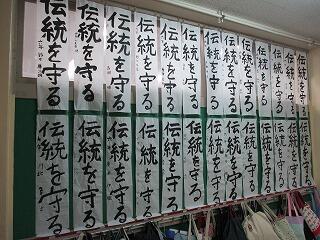 伝統を守る
伝統を守る
伝統を守る
伝統を守る
伝統を守る
伝統を守る
伝統を守る
伝統を守る
伝統を守る
伝統を守る
伝統を守る
伝統を守る
伝統を守る
伝統を守る
伝統を守る
伝統を守る
伝統を守る
伝統を守る
伝統を守る
伝統を守る
伝統を守る
伝統を守る
伝統を守る
伝統を守る